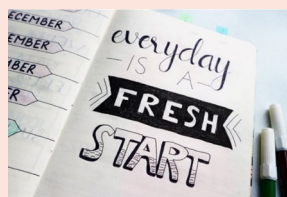 ECEMBER
CEMBER
MBER
ER
R
everyday
IS A
FRESH
START